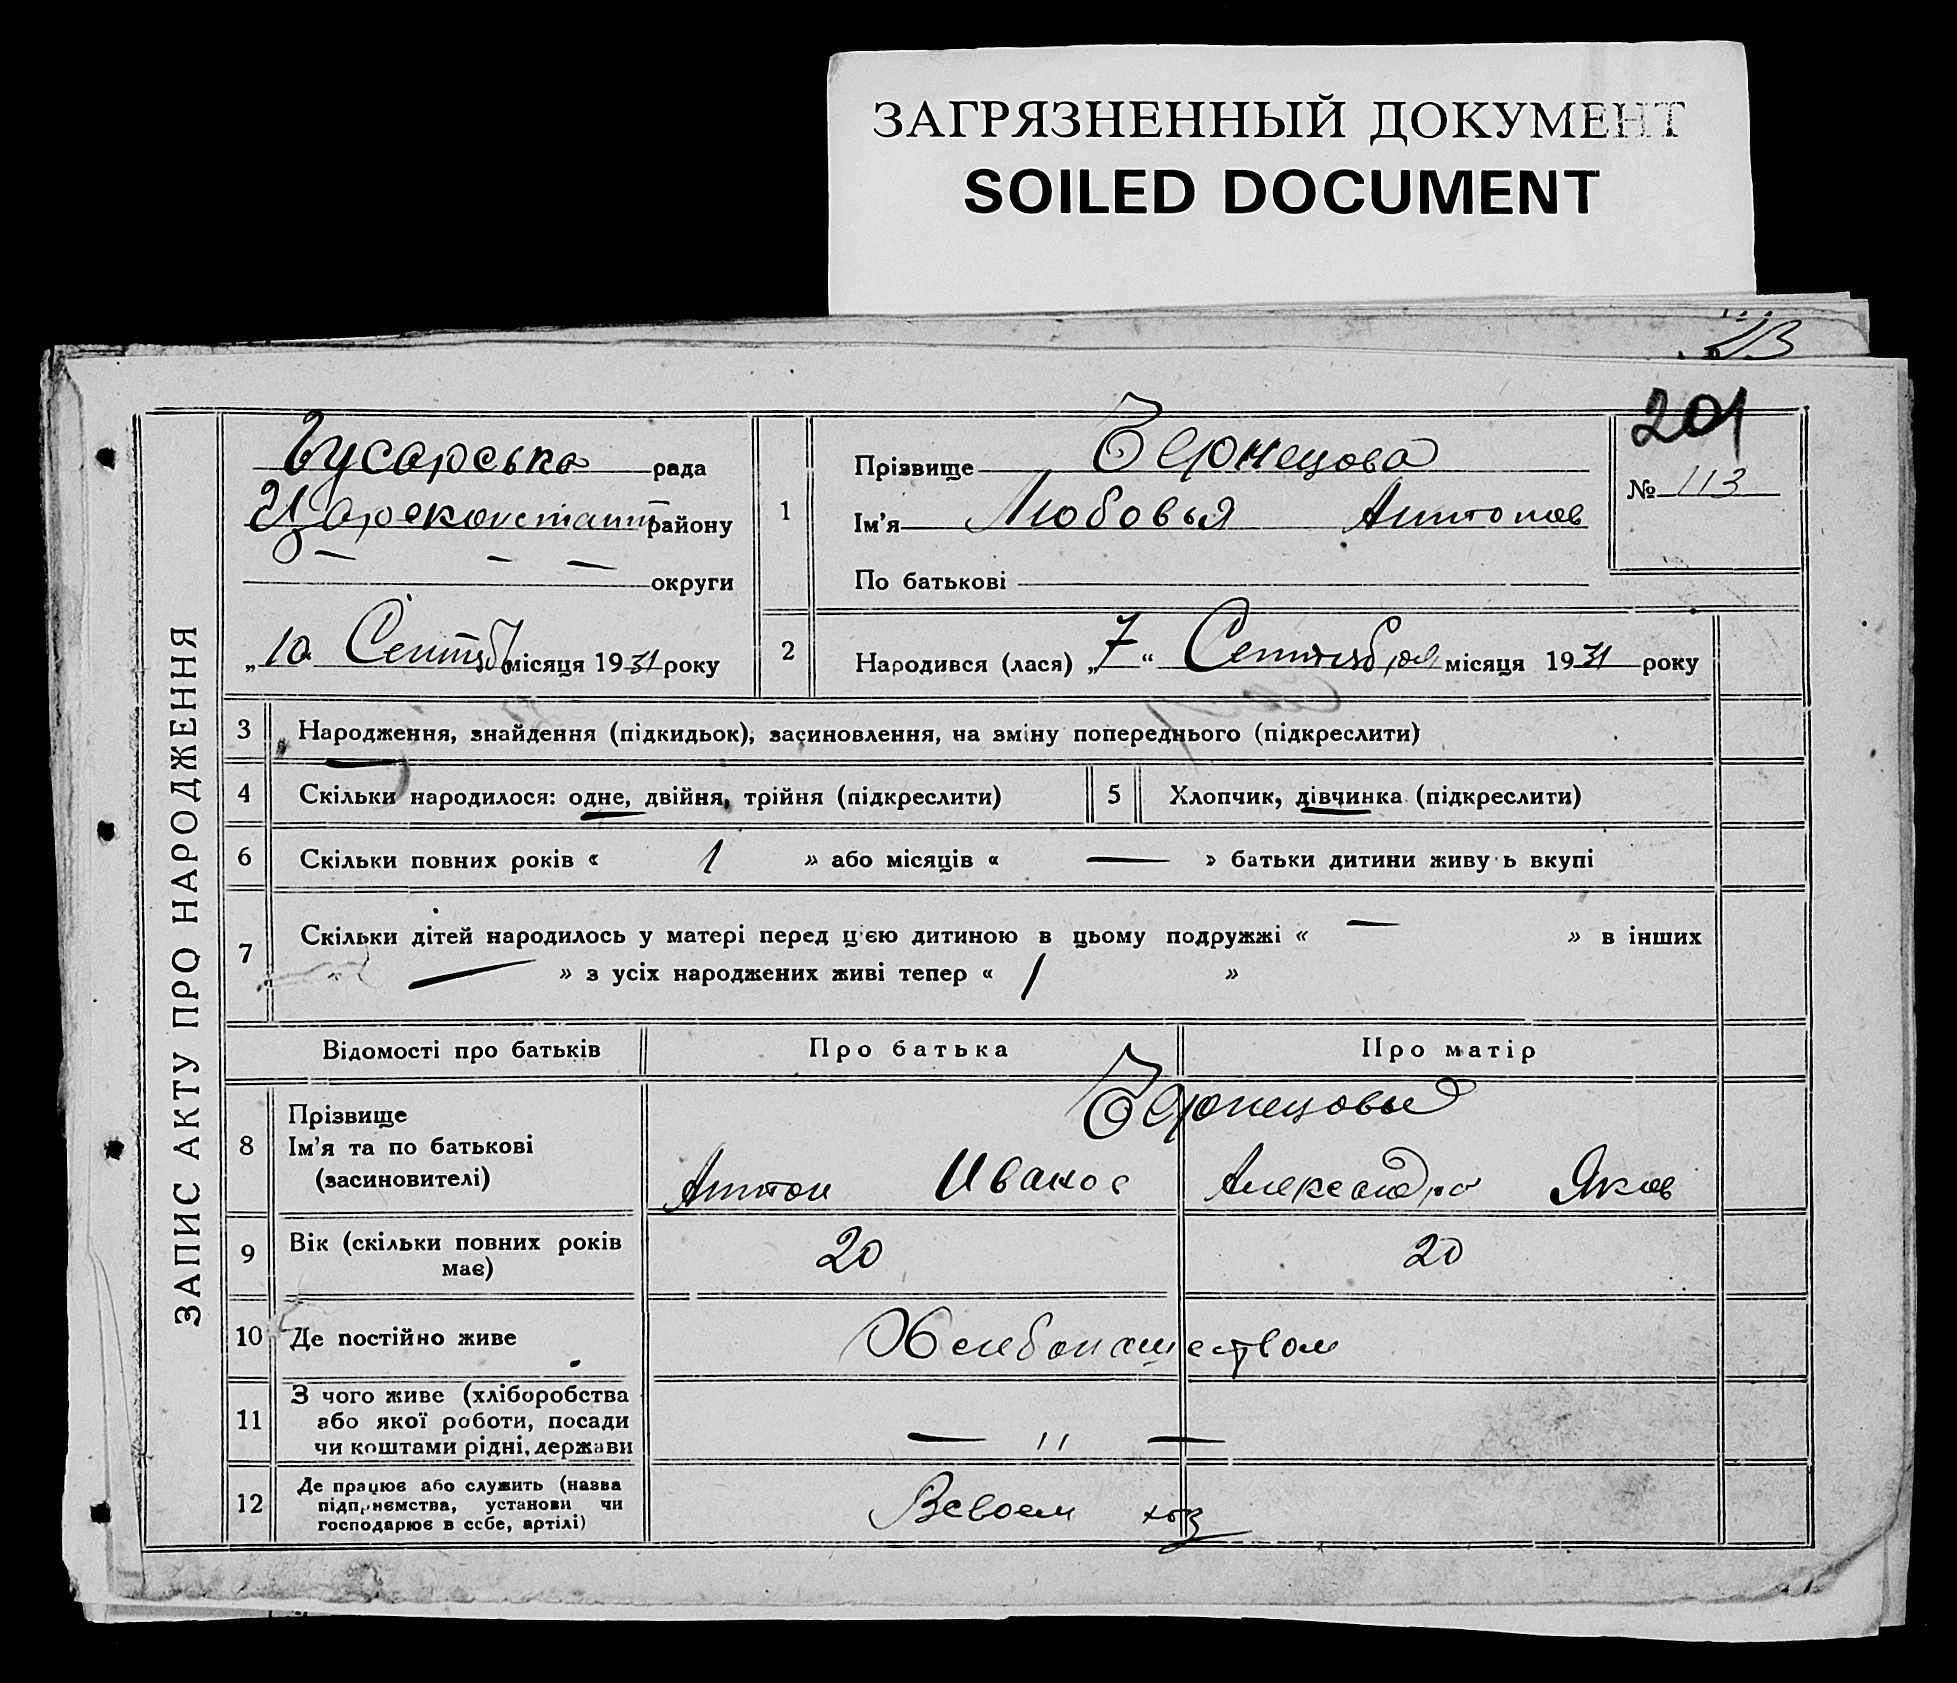 ЗАГРЯЗНЕННЫЙ ДОКУМЕНТ
SOILED DOCUMENT
201
ЗАПИС АКТУ ПРО НАРОДЖЕННЯ
Гусарська рада
Цареконстант району
— — — округи
„10 Сентяб місяця 1931 року
1
Прізвище Чернецова
Ім'я Любовья Антонов
По батькові
№ 113
2
Народився (лася) „7“ Сентября місяця 1931 року
3 Народження, знайдення (підкидьок), засиновлення, на зміну попереднього (підкреслити)
4 Скільки народилося: одне, двійня, трійня (підкреслити)
5 Хлопчик, дівчинка (підкреслити)
6 Скільки повних років « 1 » або місяців « — » батьки дитини живуть вкупі
7 Скільки дітей народилось у матері перед цією дитиною в цьому подружжі « — » в інших
« — » з усіх народжених живі тепер « 1 »
Відомості про батьків Про батька Про матір
8 Прізвище
Ім'я та по батькові
(засиновителі)
Чернецовы
Антон Иванов Александра Яков
9 Вік (скільки повних років
має)
20 20
10 Де постійно живе
Хлебопашеством
11 З чого живе (хліборобства
або якої роботи, посади
чи коштами рідні, держави
— 11 —
12 Де працює або служить (назва
підприємства, установи чи
господарює в себе, артілі)
Всвоем хоз